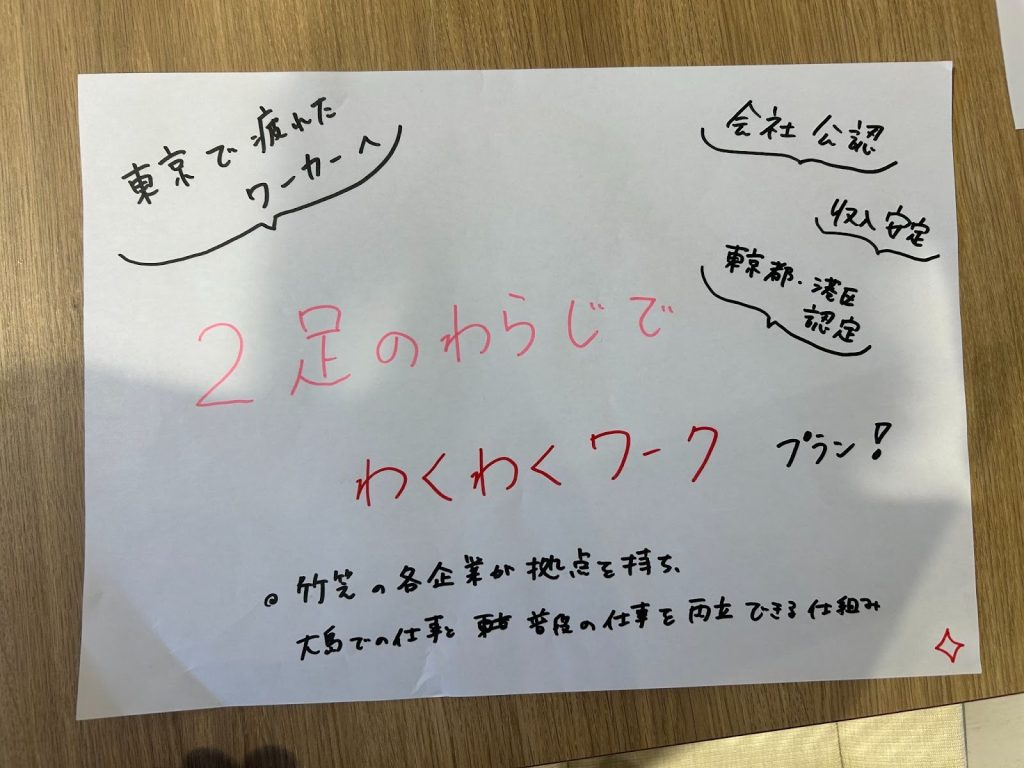 東京で疲れた
ワーカーへ
会社公認
収入安定
東京都・港区
認定
2足のわらじで
わくわくワーク プラン!
竹芝の各企業が拠点を持ち、
大島での仕事と 普段の仕事を両立できる仕組み